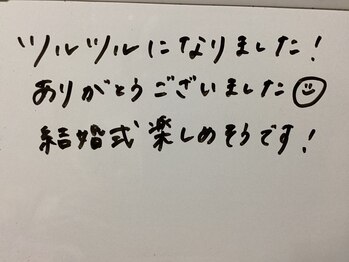 ツルツルになりました!
ありがとうございました☺
結婚式楽しめそうです!